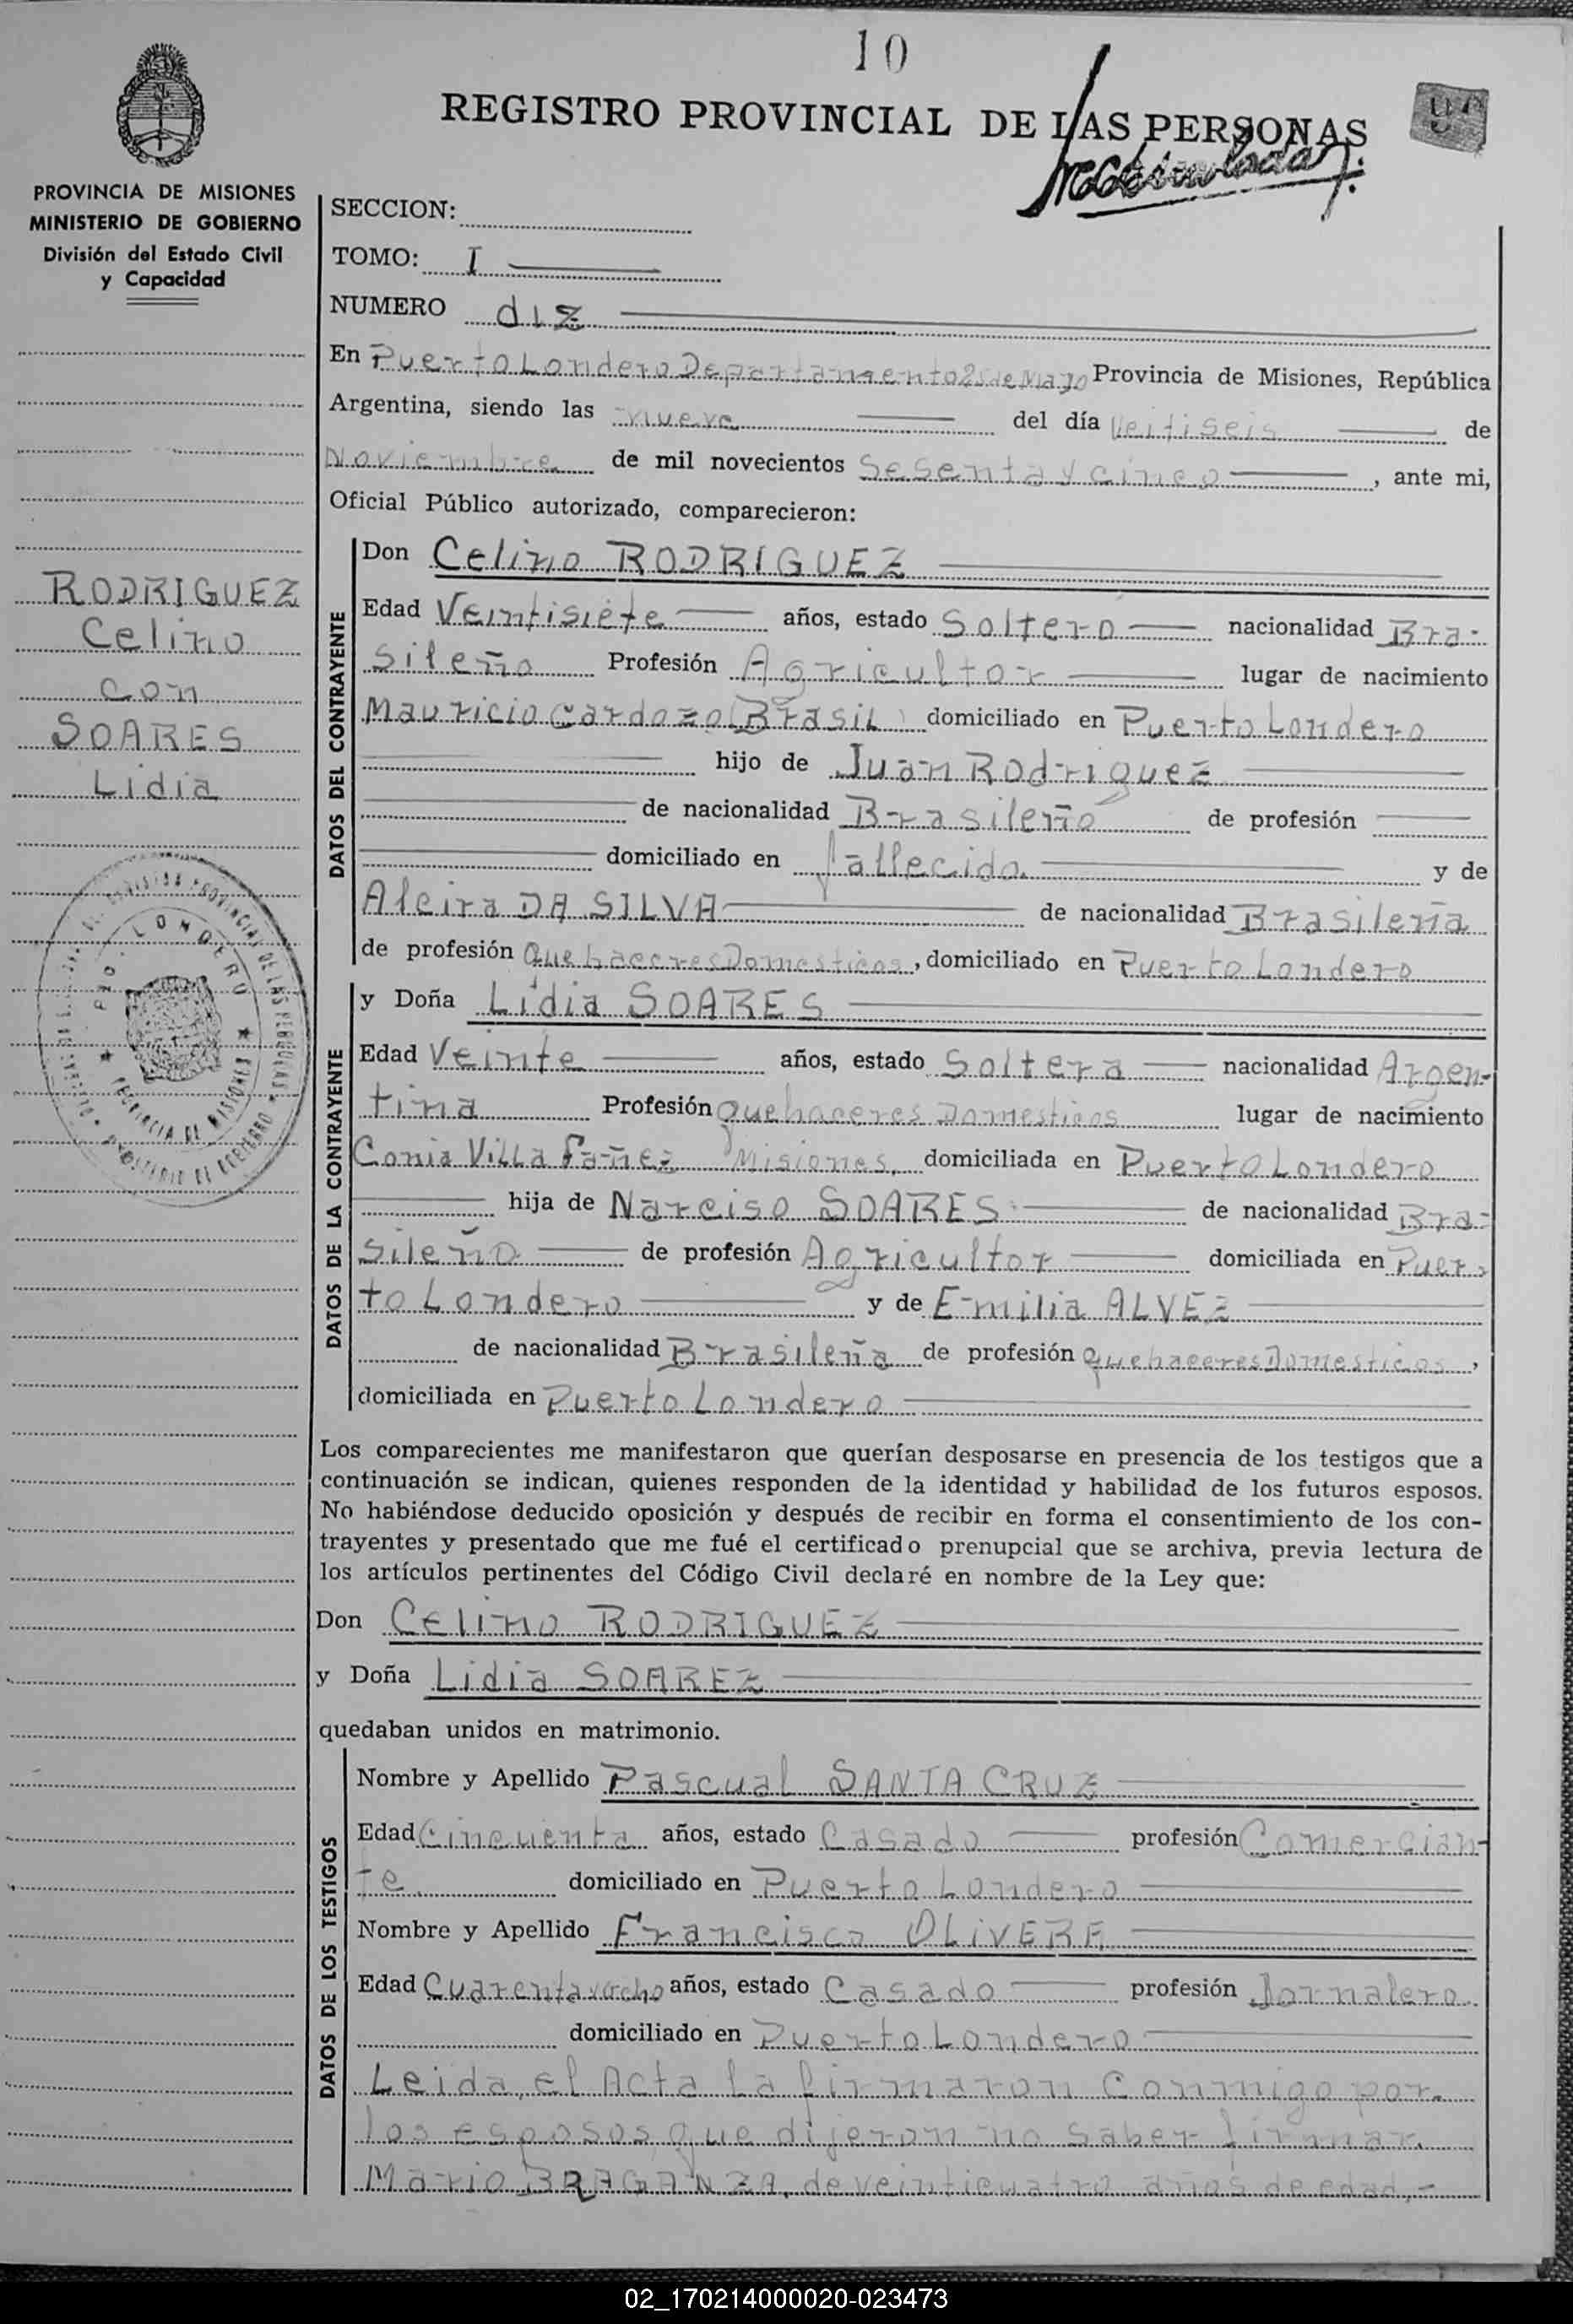 10
REGISTRO PROVINCIAL DE LAS PERSONAS
PROVINCIA DE MISIONES
MINISTERIO DE GOBIERNO
División del Estado Civil
y Capacidad
SECCION:
TOMO: I
NUMERO diz
En Puerto Londero Departamento 25 de Mayo Provincia de Misiones, República
Argentina, siendo las nueve del día Veitiseis de
Noviembre de mil novecientos Sesenta y cinco, ante mi,
Oficial Público autorizado, comparecieron:
RODRIGUEZ
Celino
con
SOARES
Lidia
DATOS DEL CONTRAYENTE
Don Celino RODRIGUEZ
Edad Veintisiete años, estado Soltero nacionalidad Bra-
sileño Profesión Agricultor lugar de nacimiento
Mauricio Cardozo (Brasil) domiciliado en Puerto Londero
hijo de Juan Rodriguez
de nacionalidad Brasileño de profesión
domiciliado en fallecido y de
Alcira DA SILVA de nacionalidad Brasileña
de profesión Quehaceres Domesticos, domiciliado en Puerto Londero
DATOS DE LA CONTRAYENTE
y Doña Lidia SOARES
Edad Veinte años, estado Soltera nacionalidad Argen-
tina Profesión Quehaceres Domesticos lugar de nacimiento
Conia Villa fañez Misiones, domiciliada en Puerto Londero
hija de Narciso SOARES de nacionalidad Bra-
sileño de profesión Agricultor domiciliada en Puer-
to Londero y de Emilia ALVEZ
de nacionalidad Brasileña de profesión Quehaceres Domesticos,
domiciliada en Puerto Londero
Los comparecientes me manifestaron que querían desposarse en presencia de los testigos que a
continuación se indican, quienes responden de la identidad y habilidad de los futuros esposos.
No habiéndose deducido oposición y después de recibir en forma el consentimiento de los con-
trayentes y presentado que me fué el certificado prenupcial que se archiva, previa lectura de
los artículos pertinentes del Código Civil declaré en nombre de la Ley que:
Don Celino RODRIGUEZ
y Doña Lidia SOAREZ
quedaban unidos en matrimonio.
DATOS DE LOS TESTIGOS
Nombre y Apellido Pascual SANTA CRUZ
Edad Cincuenta años, estado Casado profesión Comercian-
te domiciliado en Puerto Londero
Nombre y Apellido Francisco OLIVERA
Edad Cuarenta y ocho años, estado Casado profesión Jornalero
domiciliado en Puerto Londero
Leida, el Acta la firmaron conmigo por
los esposos que dijeron no saber firmar
Mario BRAGANZA, de veinticuatro años de edad,-
02_170214000020-023473